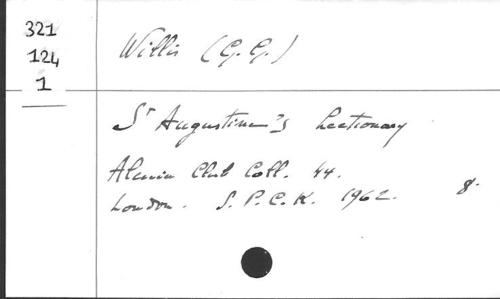 321
124
1
Willis (G. G.)
St Augustine's Lectionary
Alcuin Club Coll. 44.
London. S. P. C. K. 1962. 8.